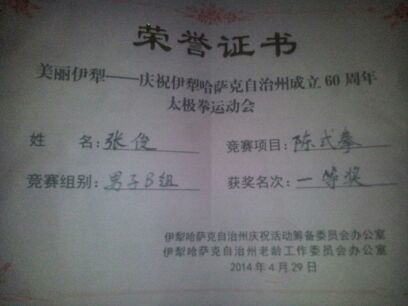 荣誉证书
美丽伊犁——庆祝伊犁哈萨克自治州成立60周年
太极拳运动会
姓 名：张俊 竞赛项目：陈式拳
竞赛组别：男子B组 获奖名次：一等奖
伊犁哈萨克自治州庆祝活动筹备委员会办公室
伊犁哈萨克自治州老龄工作委员会办公室
2014年4月29日